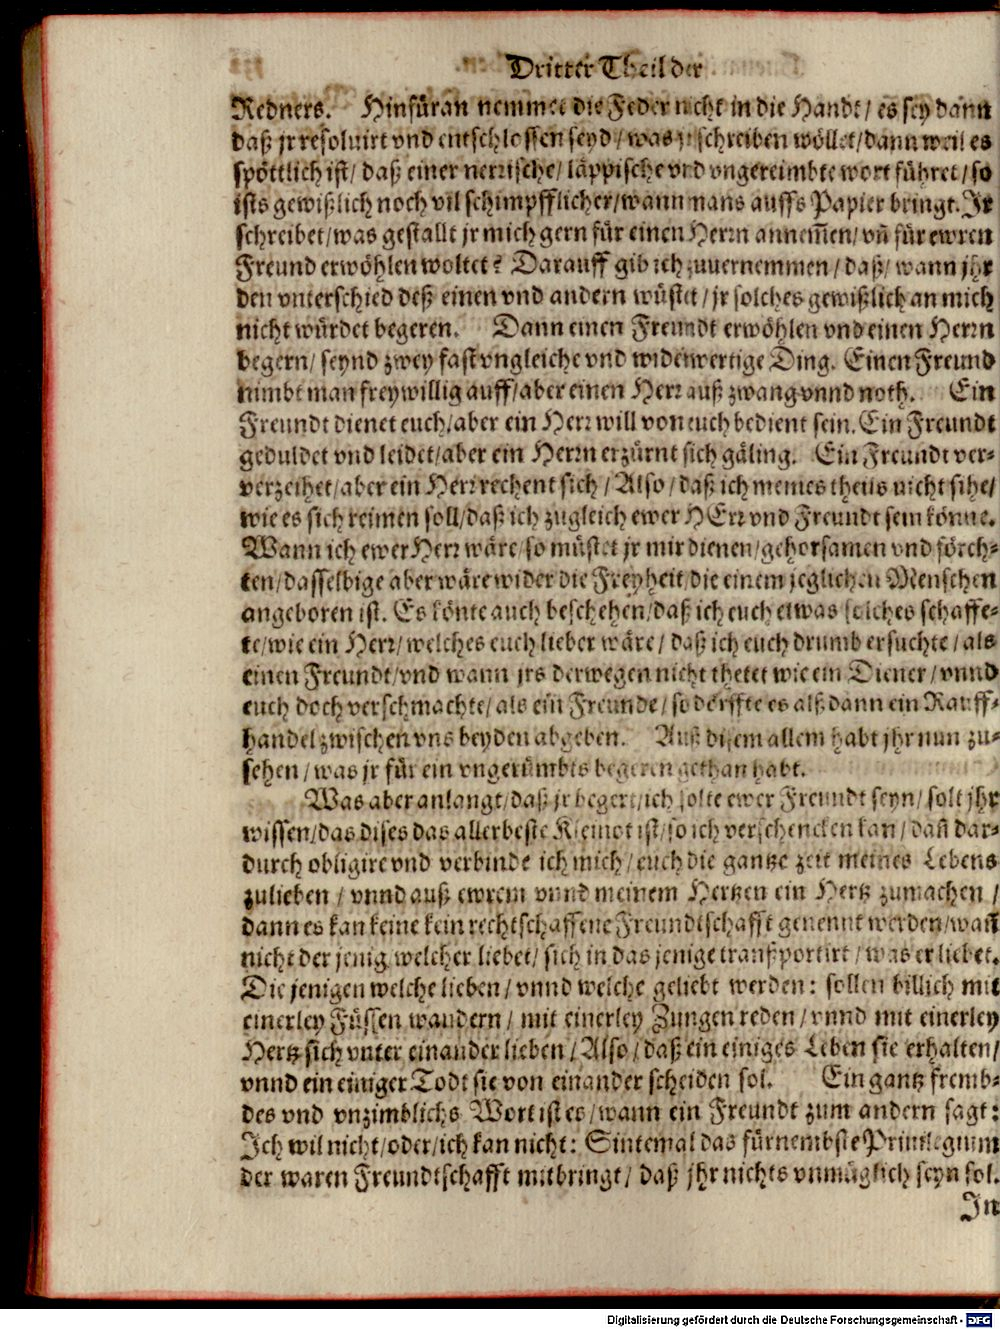 Dritter Theil der
Redners. Hinfüran nemmet die Feder nicht in die Handt / es sey dann
daß jr resoluirt vnd entschlossen seyd / was jr schreiben wöllet / dann weil es
spöttlich ist / daß einer nerrische / läppische vnd vngereimbte wort führet / so
ists gewißlich noch vil schimpfflicher / wann mans auffs Papier bringt. Jr
schreibet / was gestallt jr mich gern für einen Herrn annem̃en / vñ für ewren
Freund erwöhlen woltet? Darauff gib ich zuuernemmen / daß / wann jhr
den vnterschied deß einen vnd andern wüstet / jr solches gewißlich an mich
nicht würdet begeren. Dann einen Freundt erwöhlen vnd einen Herrn
begern / seynd zwey fast vngleiche vnd widerwertige Ding. Einen Freund
nimbt man freywillig auff / aber einen Herr auß zwang vnnd noth. Ein
Freundt dienet euch / aber ein Herr will von euch bedient sein. Ein Freundt
geduldet vnd leidet / aber ein Herrn erzürnt sich gäling. Ein Freundt ver-
verzeihet / aber ein Herr rechent sich / Also / daß ich meines theils nicht sihe /
wie es sich reimen soll / daß ich zugleich ewer HErr vnd Freundt sein könne.
Wann ich ewer Herr wäre / so müstet jr mir dienen / gehorsamen vnd förch-
ten / dasselbige aber wäre wider die Freyheit / die einem jeglichen Menschen
angeboren ist. Es könte auch beschehen / daß ich euch etwas solches schaffe-
te / wie ein Herr / welches euch lieber wäre / daß ich euch drumb ersuchte / als
einen Freundt / vnd wann jrs derwegen nicht thetet wie ein Diener / vnnd
euch doch verschmachte / als ein Freunde / so dörffte es alß dann ein Rauff-
handel zwischen vns beyden abgeben. Auß disem allem habt jhr nun zu-
sehen / was jr für ein vngerümbts begeren gethan habt.
Was aber anlangt / daß jr begert / ich solte ewer Freundt seyn / solt jhr
wissen / das dises das allerbeste Kleinot ist / so ich verschencken kan / dañ dar-
durch obligire vnd verbinde ich mich / euch die gantze zeit meines Lebens
zulieben / vnnd auß ewrem vnnd meinem Hertzen ein Hertz zumachen /
dann es kan keine kein rechtschaffene Freundtschafft genennt werden / wañ
nicht der jenig welcher liebet / sich in das jenige tranßportirt / was er liebet.
Die jenigen welche lieben / vnnd welche geliebt werden: sollen billich mit
einerley Füssen wandern / mit einerley Zungen reden / vnnd mit einerley
Hertz sich vnter einander lieben / Also / daß ein einiges Leben sie erhalten /
vnnd ein einiger Todt sie von einander scheiden sol. Ein gantz fremb-
des vnd vnzimblichs Wort ist es / wann ein Freundt zum andern sagt:
Jch wil nicht / oder / ich kan nicht: Sintemal das fürnembste Priuilegium
der waren Freundtschafft mitbringt / daß jhr nichts vnmüglich seyn sol.
Jn
Digitalisierung gefördert durch die Deutsche Forschungsgemeinschaft - DFG